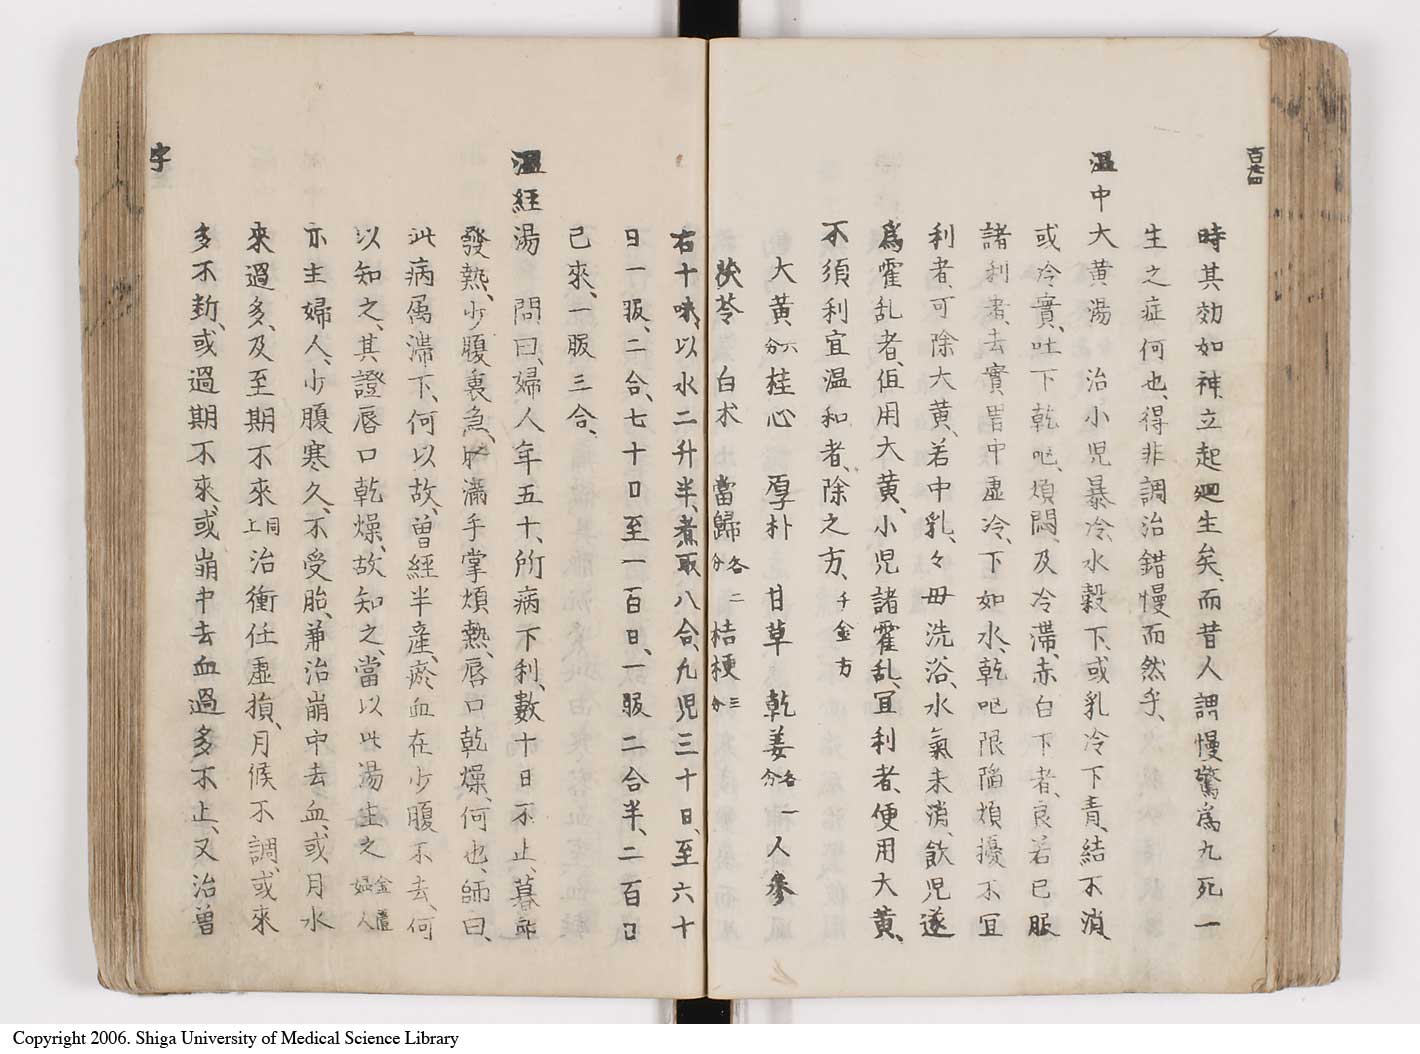 百廿四
時其効如神、立起廻生矣、而昔人謂慢驚爲九死一
生之症何也、得非調治錯慢而然乎、
温中大黄湯　治小児暴冷、水穀下、或乳冷下青、結不消
或冷實、吐下乾呕、煩悶、及冷滯、赤白下者、良若已服
諸利者、去實胃中虚冷、下如水、乾呕眼陥煩擾不冝
利者、可除大黄、若中乳、々母洗浴、水氣未消、飲児遂
爲霍乱者、但用大黄、小児諸霍乱、冝利者、便用大黄、
不須利宜温和者、除之方、千金方
大黄六分　桂心　厚朴　甘草　乾姜各一分　人參
茯苓　白朮　當歸各二分　桔梗三分
右十味、以水二升半、煮取八合、九児三十日、至六十
日一服、二合、七十日至一百日、一服二合半、二百日
已來、一服三合、
温経湯　問曰、婦人年五十、所病下利、數十日不止、暮即
發熱、少腹裏急、腹滿手掌煩熱、唇口乾燥、何也、師曰、
此病属滞下、何以故、曽經半産、瘀血在少腹不去、何
以知之、其證唇口乾燥、故知之、當以此湯主之金匱婦人
亦主婦人、少腹寒久、不受胎、兼治崩中去血、或月水
來過多、及至期不來同上治衝任虚損、月候不調、或來
多不断、或過期不來、或崩中去血過多不止、又治曽
字
Copyright 2006. Shiga University of Medical Science Library